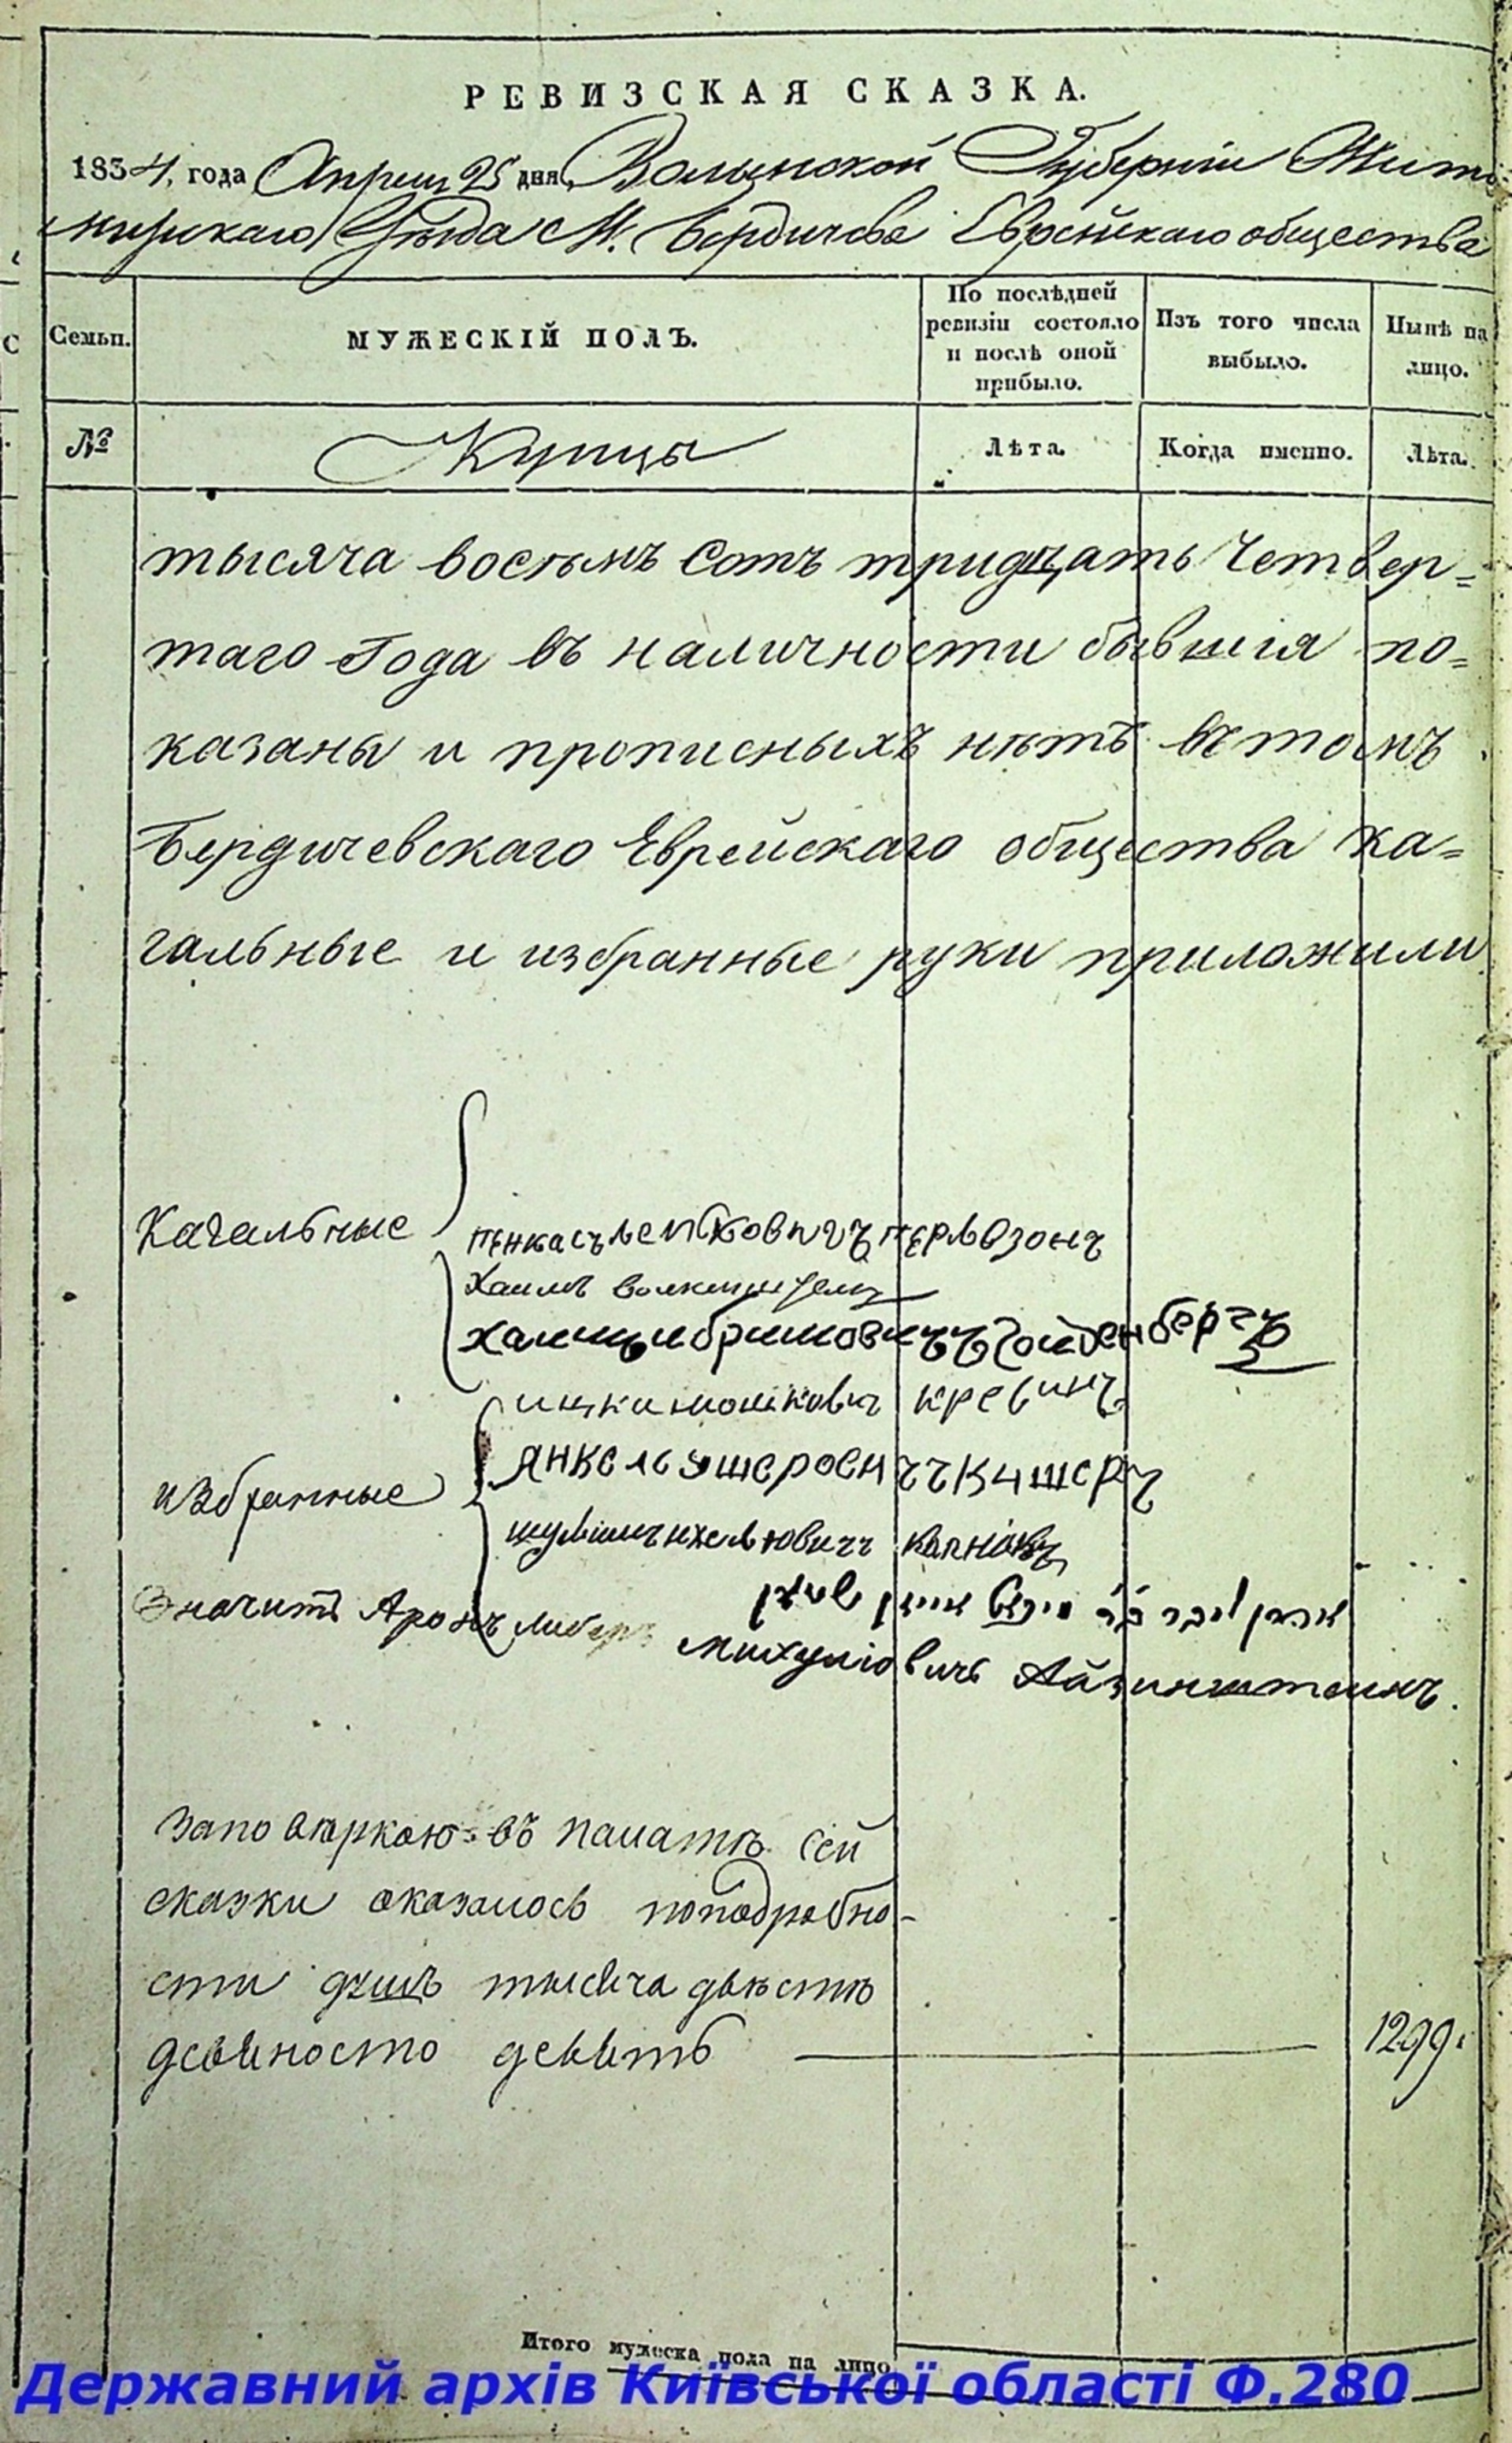 РЕВИЗСКАЯ СКАЗКА.
1834, года Апреля 25 дня, Волынской Губерніи Жито-
мирскаго Уѣзда М. Бердичева Еврейскаго общества
Семьи.
МУЖЕСКІЙ ПОЛЪ.
По послѣдней
ревизіи состояло
и послѣ оной
прибыло.
Изъ того числа
выбыло.
Нынѣ на
лицо.
№
Купцы
Лѣта.
Когда именно.
Лѣта.
тысяча восемъ Сотъ тридцать Четвер=
таго Года въ наличности бывшія по=
казаны и прописныхъ нѣтъ въ томъ
Бердичевскаго Еврейскаго общества Ка=
гальные и избранные руки приложили
Кагальные
пенкасъ перлзонъ
Хаимъ
Хаимъ
ицки мошковичъ кревинъ
Янкель ушеровичъ Кишеръ
избранные
Значитъ Аронъ Либеръ
михулювичъ Айзинштеинъ.
Заповѣркою въ палатѣ сей
сказки оказалось поподробно-
сти душъ тысяча двѣстѣ
девяносто девять 1299.
Итого мужеска пола на лицо
Державний архів Київської області Ф.280